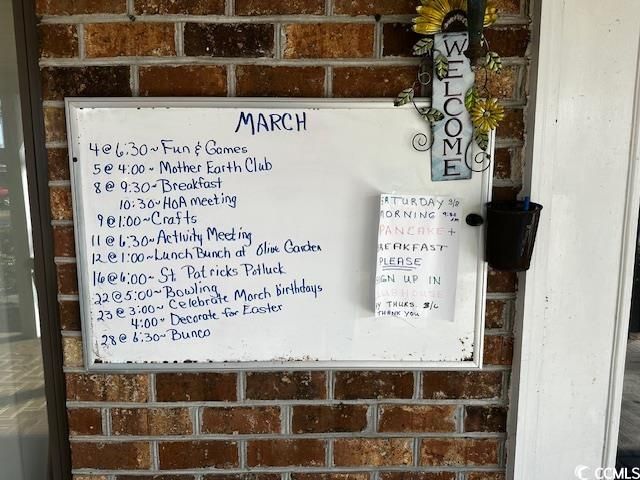 WELCOME
MARCH
4 @ 6:30~ Fun & Games
5 @ 4:00~ Mother Earth Club
8 @ 9:30~ Breakfast
10:30~ HOA meeting
9 @ 1:00~ Crafts
11 @ 6:30~ Activity Meeting
12 @ 1:00~ Lunch Bunch at Olive Garden
16 @ 6:00~ St. Patricks Potluck
22 @ 5:00~ Bowling
23 @ 3:00~ Celebrate March birthdays
4:00~ Decorate for Easter
28 @ 6:30~ Bunco
SATURDAY 3/8
MORNING 9:30
PANCAKE +
BREAKFAST
PLEASE
SIGN UP IN
BY THURS. 3/6
THANK YOU
CCMLS